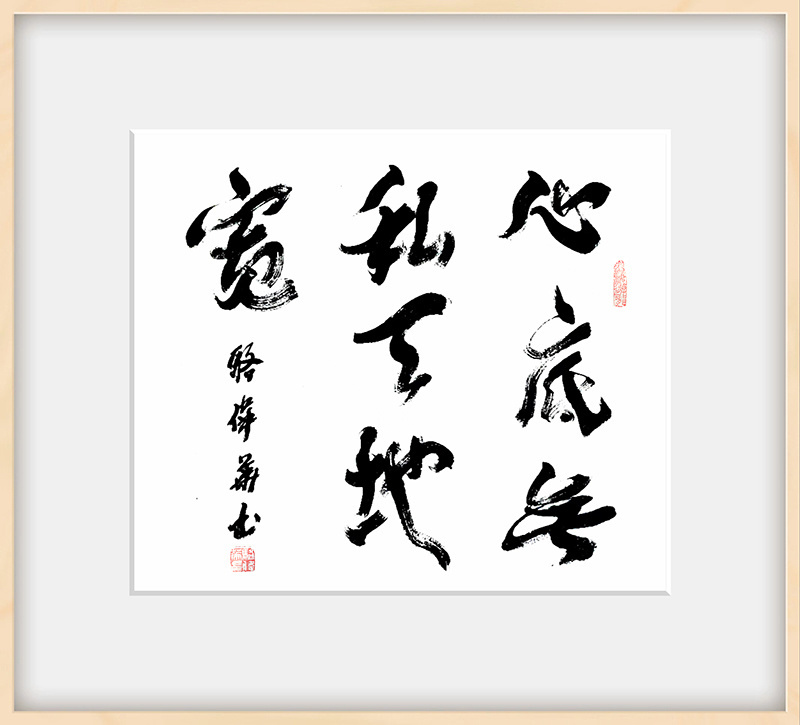 心底无
私天地
宽
骆伟华书